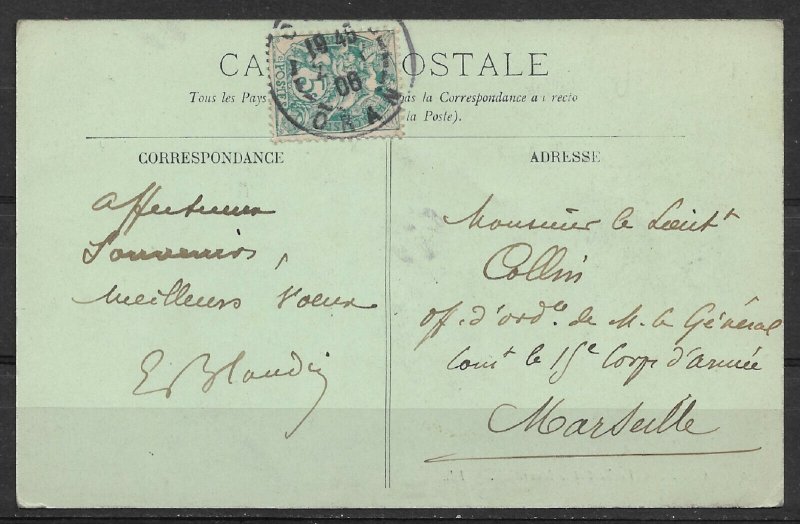 CA POSTALE
Tous les Pays pas la Correspondance au recto
la Poste).
19 45
06
ORAN
POSTES
CORRESPONDANCE
ADRESSE
Affectueux
Souvenirs,
Meilleurs Voeux
E. Blaudin
Monsieur le Lieut^t
Collin
off. d'ord^ce de M. le Général
Com^t le 15^e Corps d'armée
Marseille